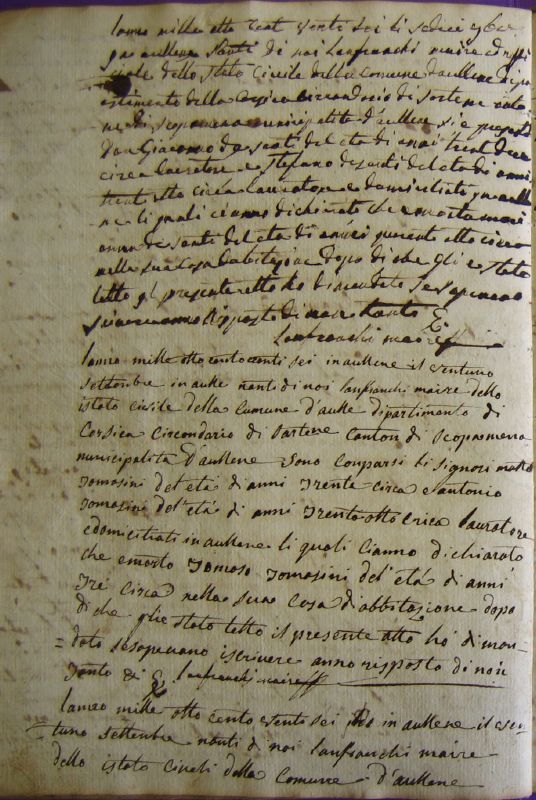 lanno mille otto cent venti sei li sedici 9bre
in aullene Nanti di noi Lanfranchi maire
dello stato Civile della Comune daullene dipar
tamento della Corsica Circondario di Sartene canto
ne di scopamena municipalità daullene si è
Don Giacomo de santi del età di anni trent
circa lauratore e Stefano desanti del età di anni
trent otto circa lauratore e domiciliati in aulle
ne li quali cianno dichiarato che è morta Mari
anna de santi del età di anni quaranta otto circa
nella sua Casa dabitazione dopo di che gli è stato
letto il presente atto ho dimandato se sapevano
scivere anno risposto di non tanto
Lanfranchi maire
lanno mille otto cento venti sei in aullene il ventuno
settembre in aulle nanti di noi lanfranchi maire dello
istato civile della Cumune d'aulle dipartimento di
Corsica Circondario di Sartene Canton di Scopamena
municipalità D'aullene Sono Conparsi li Signori
Tomasini del età di anni Trenta Circa e santonio
Tomasini del' età di anni Trento otto Circa lauratore
e domicitiati in aullene li quali Cianno dichiarato
che e morto Tomaso Tomasini del' età di anni
Tre Circa nella sua Casa D'abbitazione dopo
di che glie stato letto il presente atto ho' diman-
= dato se sapevano iscrivere anno risposto di non
Tanto di lanfranchi maire
lanno mille otto cento venti sei in aullene il ven-
= tuno settembre nanti di noi lanfranchi maire
dello istato Civeli della Comune d'aullene